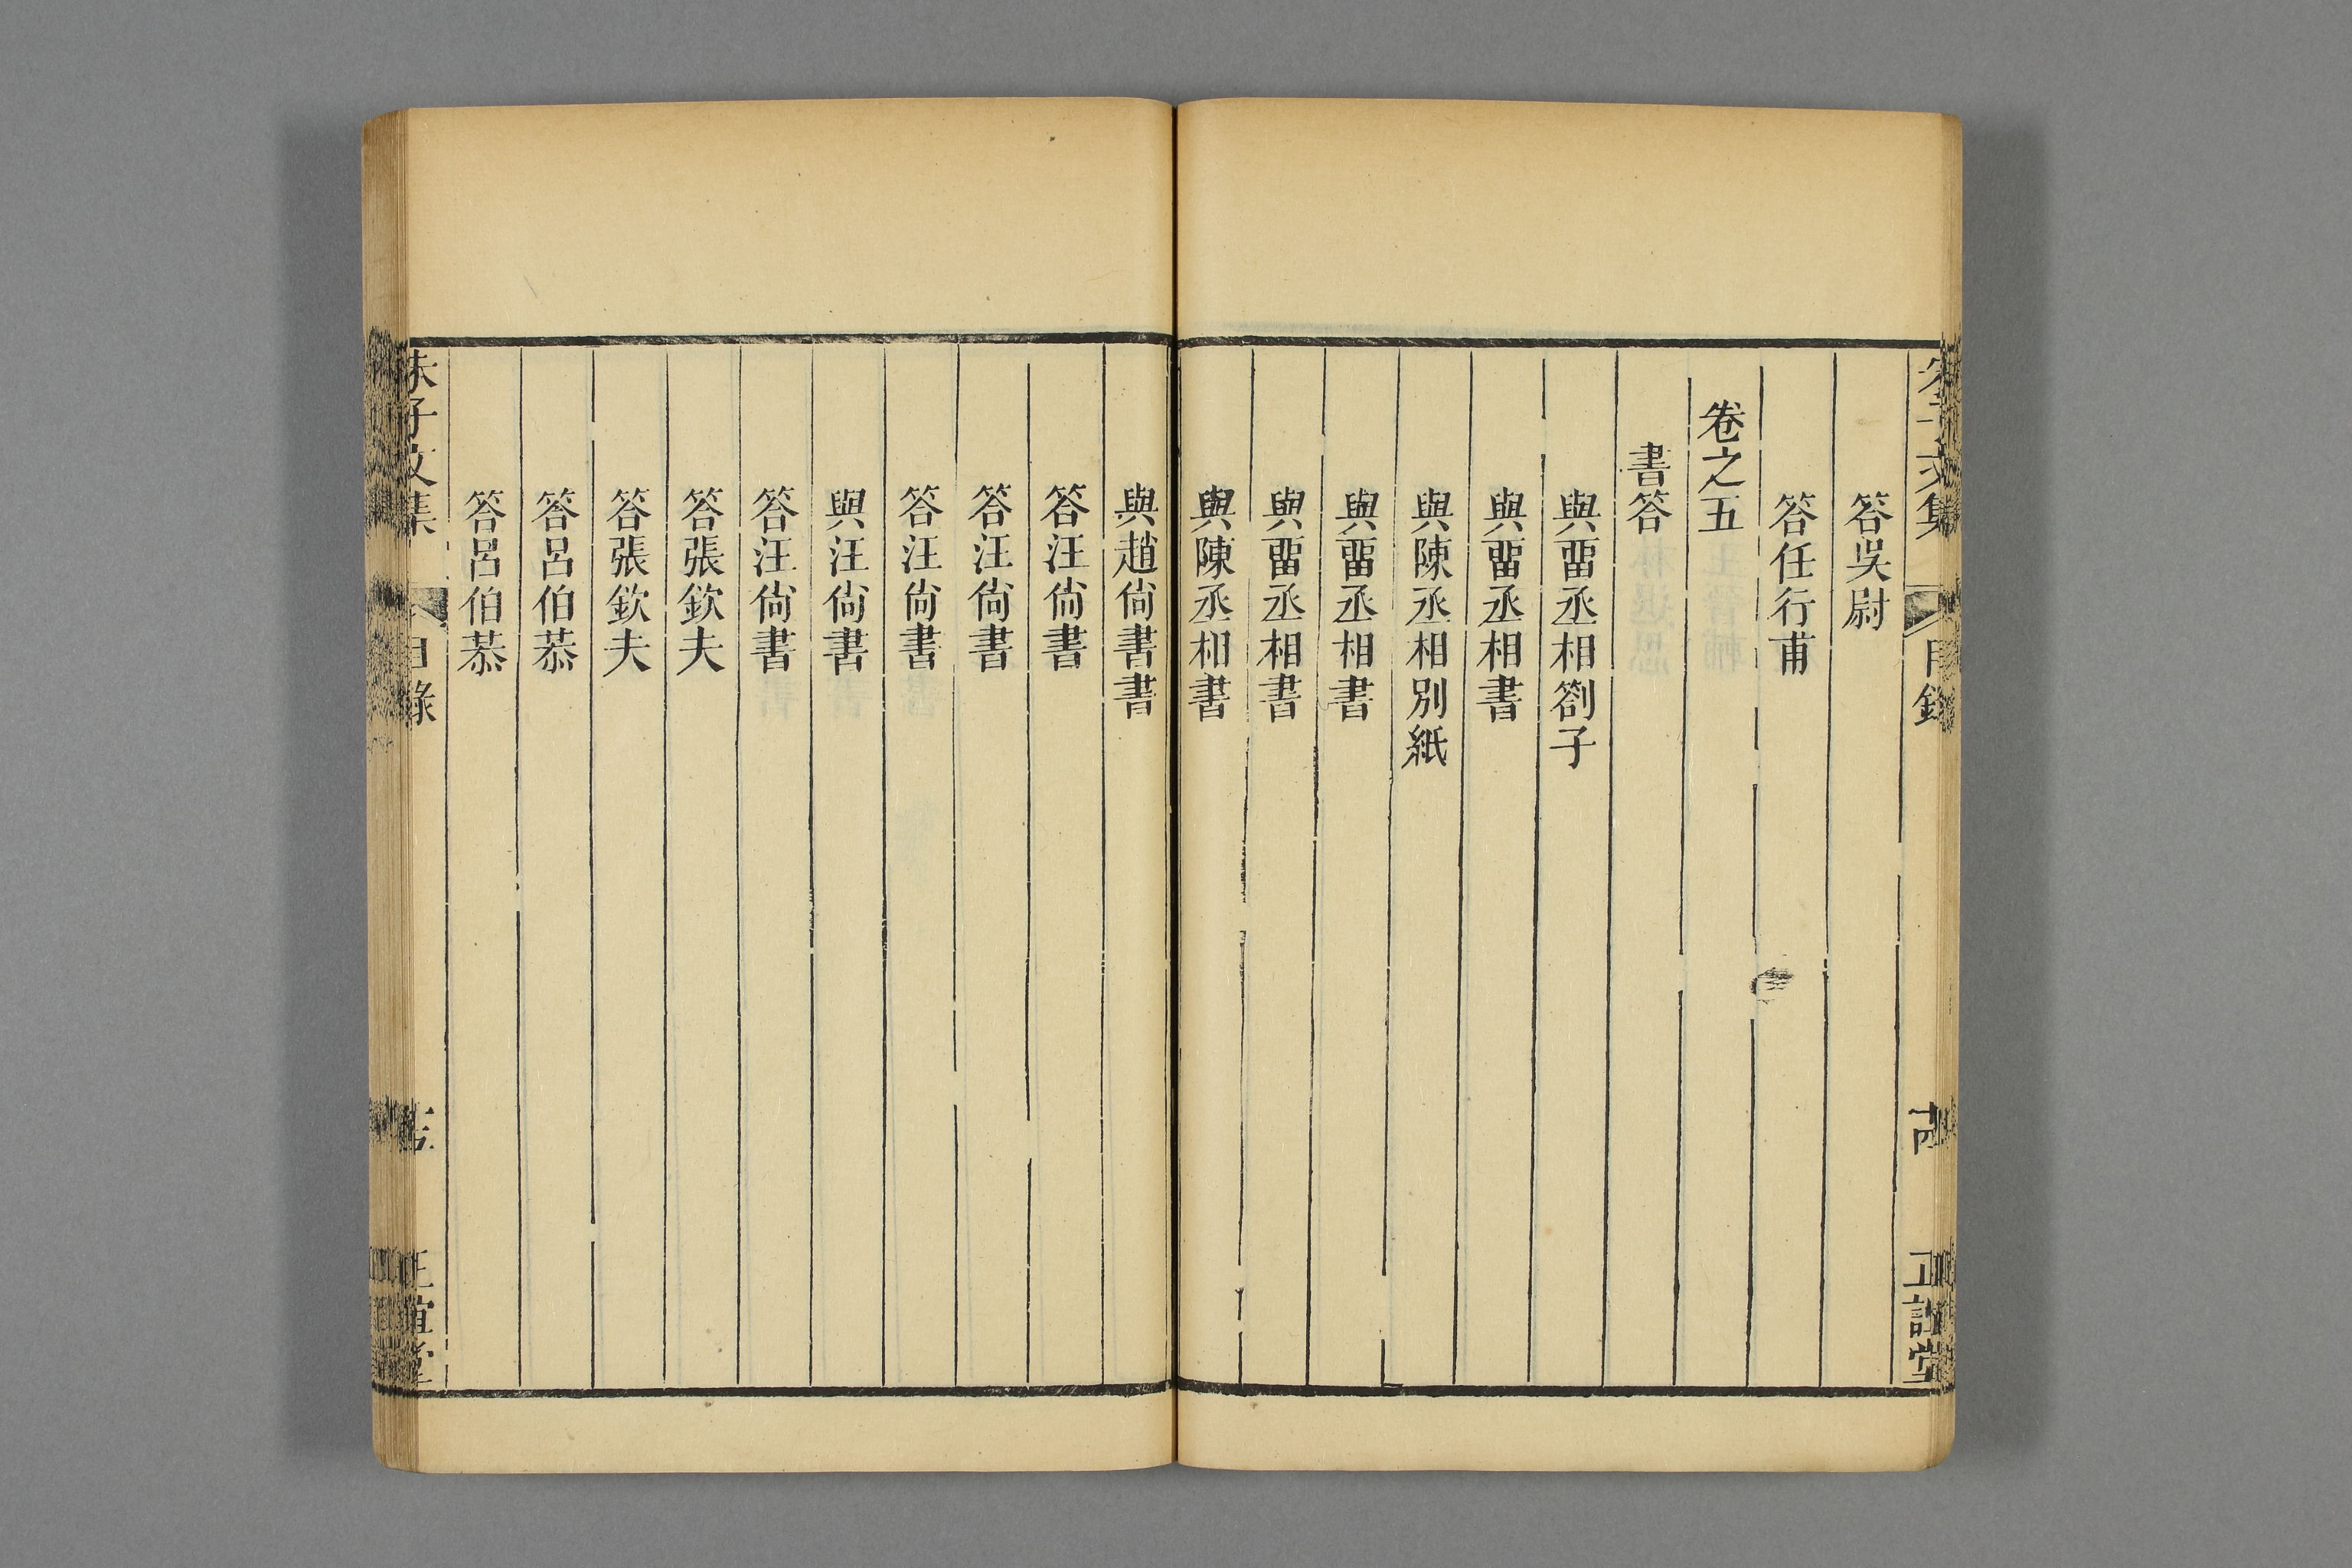 答吳尉
答任行甫
卷之五
書答
與畱丞相劄子
與畱丞相書
與陳丞相別紙
與畱丞相書
與畱丞相書
與陳丞相書
與趙尙書書
答汪尙書
答汪尙書
答汪尙書
與汪尙書
答汪尙書
答張欽夫
答張欽夫
答呂伯恭
答呂伯恭
朱子文集
目錄
正誼堂